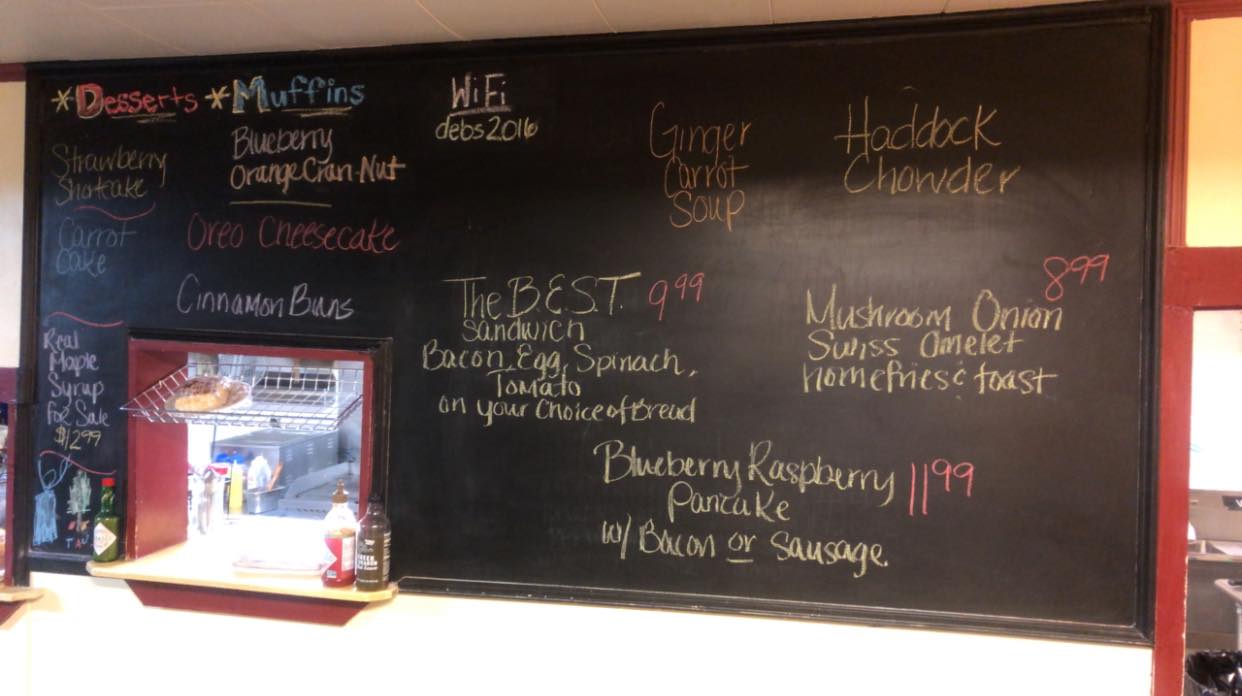 *Desserts
Strawberry
Shortcake
Carrot
Cake
Real
Maple
Syrup
For Sale
$12.99
*Muffins
Blueberry
Orange Cran-Nut
Oreo Cheesecake
Cinnamon Buns
WiFi
debs2016
Ginger
Carrot
Soup
Haddock
Chowder
The B.E.S.T. 9.99
Sandwich
Bacon, Egg, Spinach,
Tomato
on your Choice of Bread
8.99
Mushroom Onion
Swiss Omelet
homefries & toast
Blueberry Raspberry 11.99
Pancake
w/ Bacon or Sausage.